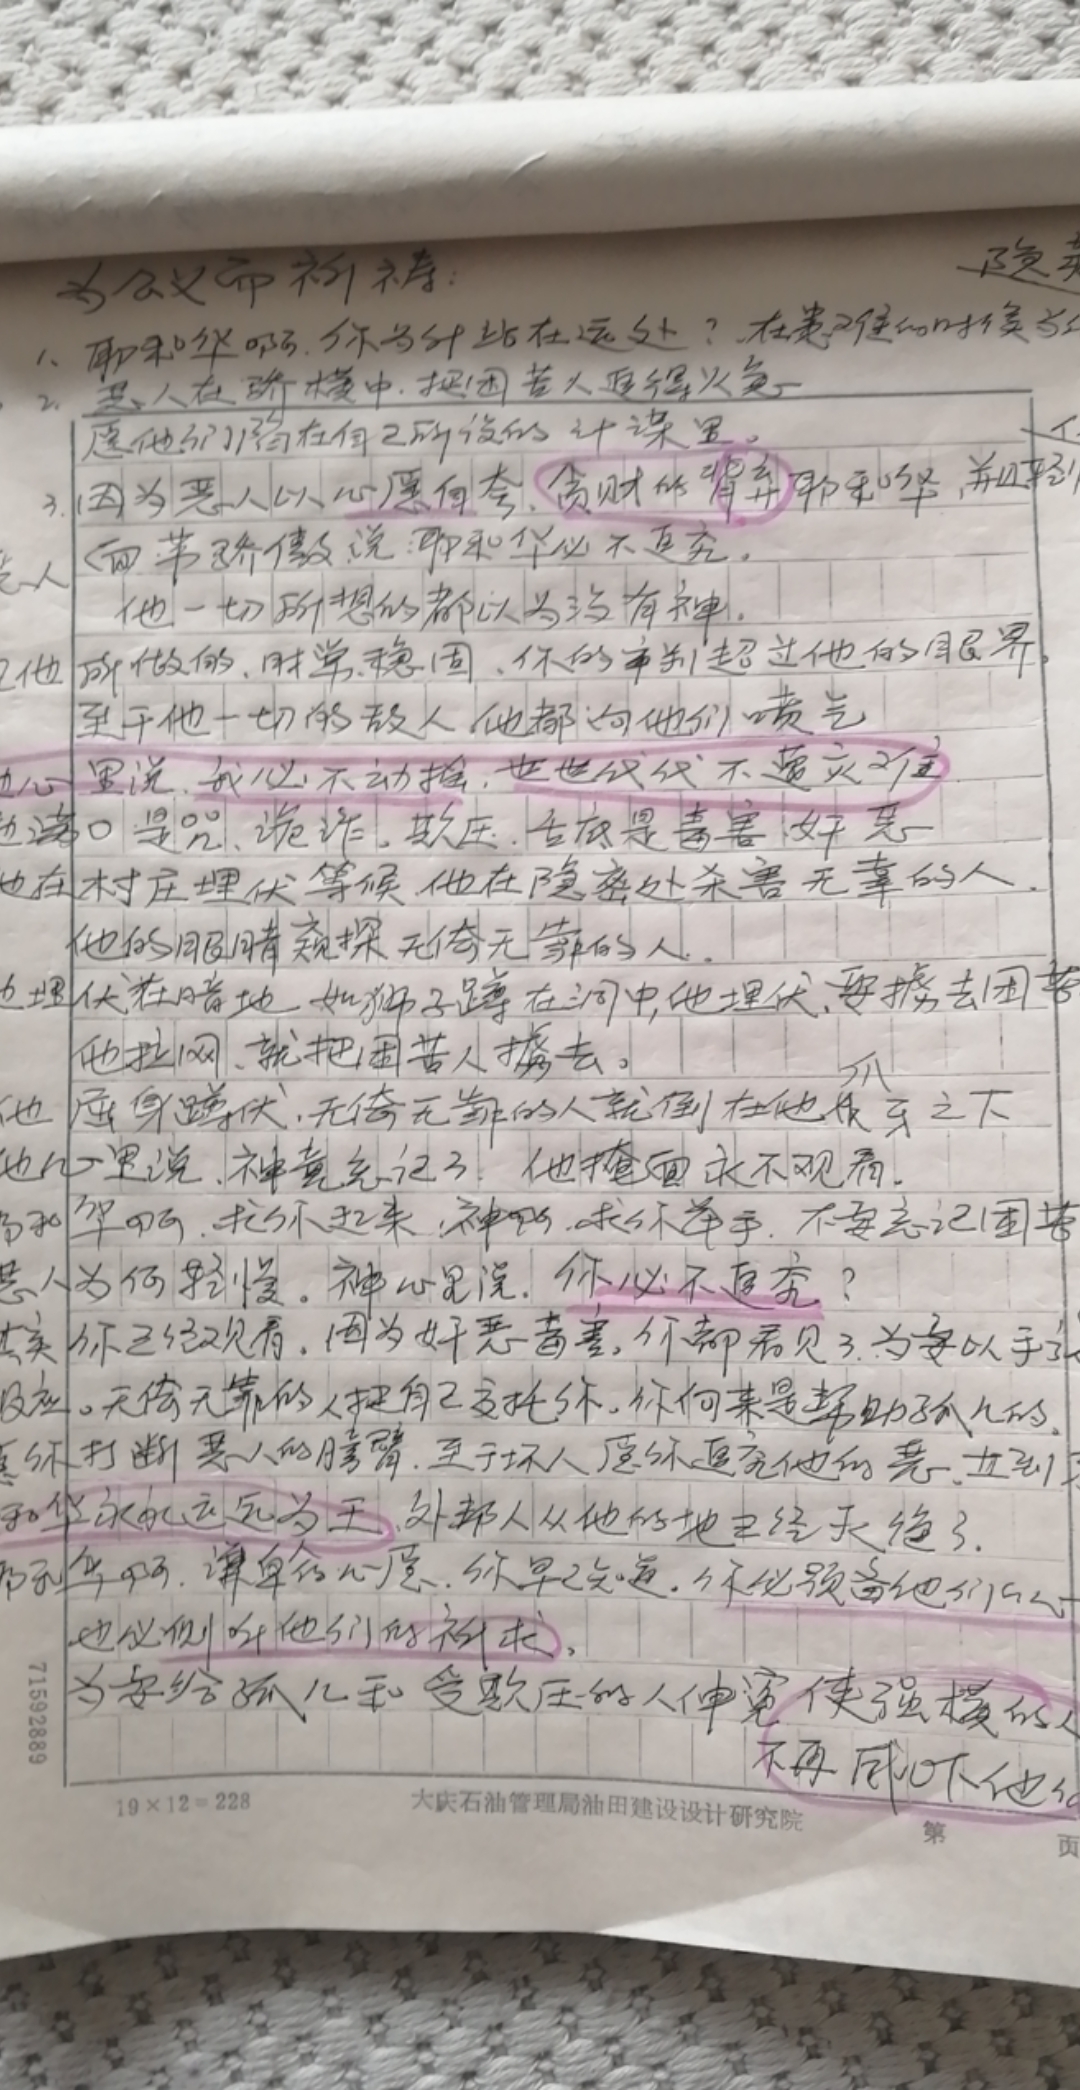 为公义而祈祷：
隐
1. 耶和华啊，你为什站在远处？在患难的时候为
2. 恶人在骄横中，把困苦人追得火急
愿他们陷在自己所设的计谋里。
3. 因为恶人以心愿自夸，贪财的背弃耶和华，并且轻
恶人面带骄傲说：耶和华必不追究。
他一切所想的都以为没有神。
他所做的，时常稳固，你的审判超过他的眼界。
至于他一切的敌人他都向他们喷气
他心里说，我必不动摇，世世代代不遭灾难
他满口是咒，诡诈。欺压，舌底是毒害奸恶
他在村庄埋伏等候，他在隐密处杀害无辜的人。
他的眼睛窥探无倚无靠的人。
他埋伏在暗地，如狮子蹲在洞中，他埋伏，要掳去困苦
他拉网，就把困苦人掳去。
他屈身蹲伏，无倚无靠的人就倒在他爪牙之下
他心里说，神竟忘记了，他掩面永不观看。
耶和华啊，求你起来，神啊，求你举手，不要忘记困苦
恶人为何轻慢。神心里说，你必不追究？
其实你已经观看，因为奸恶毒害，你都看见了，为要以手
报应。无倚无靠的人把自己交托你，你向来是帮助孤儿的。
愿你打断恶人的膀臂，至于坏人愿你追究他的恶，直到
和华永永远远为王，外邦人从他的地已经灭绝了。
耶和华啊，谦卑人的心愿，你早已知道。你必预备他们的心
也必侧听他们的祈求。
为要给孤儿和受欺压的人伸冤使强横的人
不再威吓他们
71592889
19×12=228
大庆石油管理局油田建设设计研究院
第 页